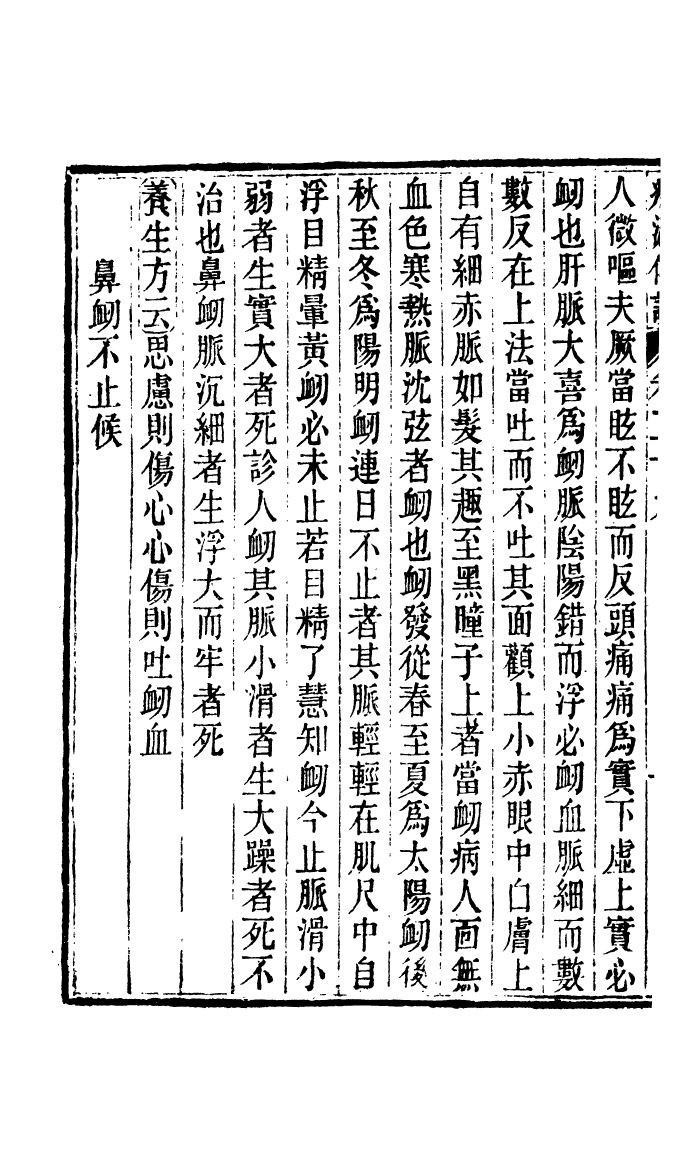 人微嘔夫厥當眩不眩而反頭痛痛爲實下虛上實必
衄也肝脈大喜爲衄脈陰陽錯而浮必衄血脈細而數
數反在上法當吐而不吐其面顴上小赤眼中白膚上
自有細赤脈如髮其趣至黑瞳子上者當衄病人面無
血色寒熱脈沈弦者衄也衄發從春至夏爲太陽衄後
秋至冬爲陽明衄連日不止者其脈輕輕在肌尺中自
浮目精暈黃衄必未止若目精了慧知衄今止脈滑小
弱者生實大者死診人衄其脈小滑者生大躁者死不
治也鼻衄脈沉細者生浮大而牢者死
養生方云思慮則傷心心傷則吐衄血
鼻衄不止候